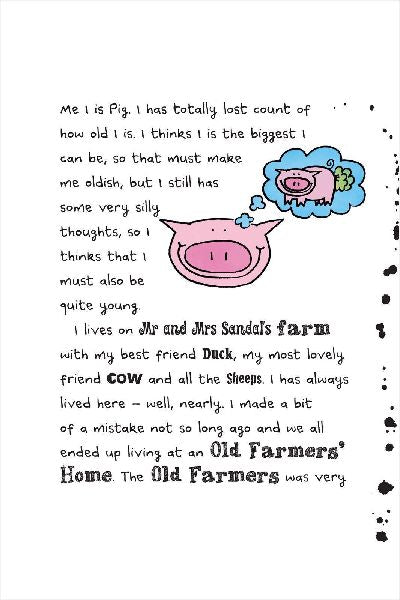 Me I is Pig. I has totally lost count of
how old I is. I thinks I is the biggest I
can be, so that must make
me oldish, but I still has
some very silly
thoughts, so I
thinks that I
must also be
quite young.
I lives on Mr and Mrs Sandal's farm
with my best friend Duck, my most lovely
friend COW and all the Sheeps. I has always
lived here – well, nearly. I made a bit
of a mistake not so long ago and we all
ended up living at an Old Farmers'
Home. The Old Farmers was very